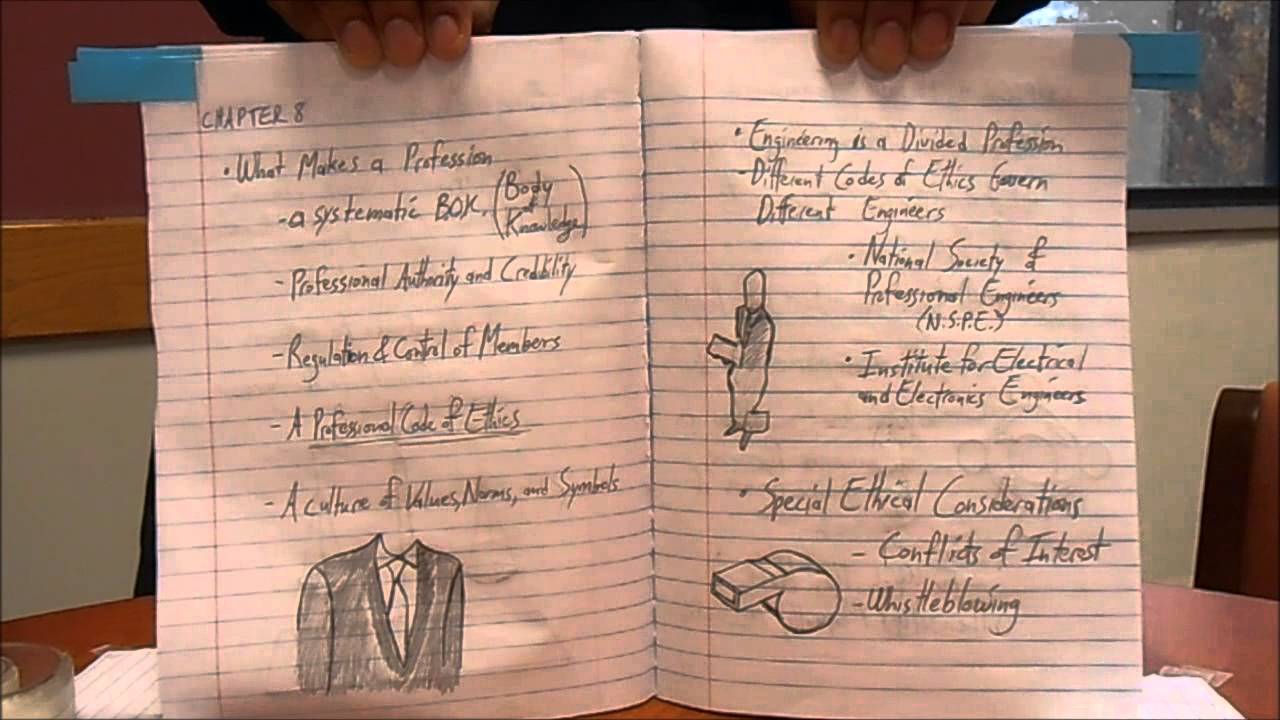 CHAPTER 8
• What Makes a Profession
- a systematic BOK, (Body of Knowledge)
- Professional Authority and Credbility
- Regulation & Control of Members
- A Professional Code of Ethics
- A culture of Values, Norms, and Symbols
• Engineering is a Divided Profession
- Different Codes of Ethics Govern
Different Engineers
• National Society of
Professional Engineers
(N.S.P.E.)
• Institute for Electrical
and Electronics Engineers
• Special Ethical Considerations
- Conflicts of Interest
- Whistleblowing